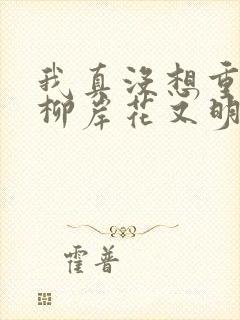 我真没想重
柳岸花又明
霍普